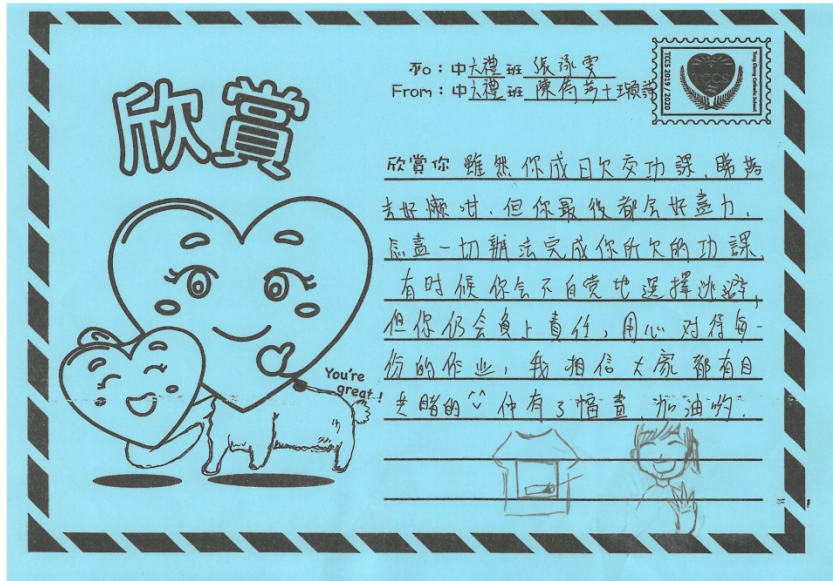 欣賞
To：中大禮班 張詠雯
From：中大禮班 陳
TCCS
TCCS 2019 / 2020
Tung Chung Catholic School
欣賞你 雖然你成日欠交功課，睇落
去好懶咁，但你最後都会好盡力，
想盡一切辦法完成你所欠的功課，
有时候你会不自觉地選擇逃避，
但你仍会負上責任，用心对待每一
份的作业，我相信大家都有目
共睹的^^ 仲有3幅畫，加油喲.
You're
great!